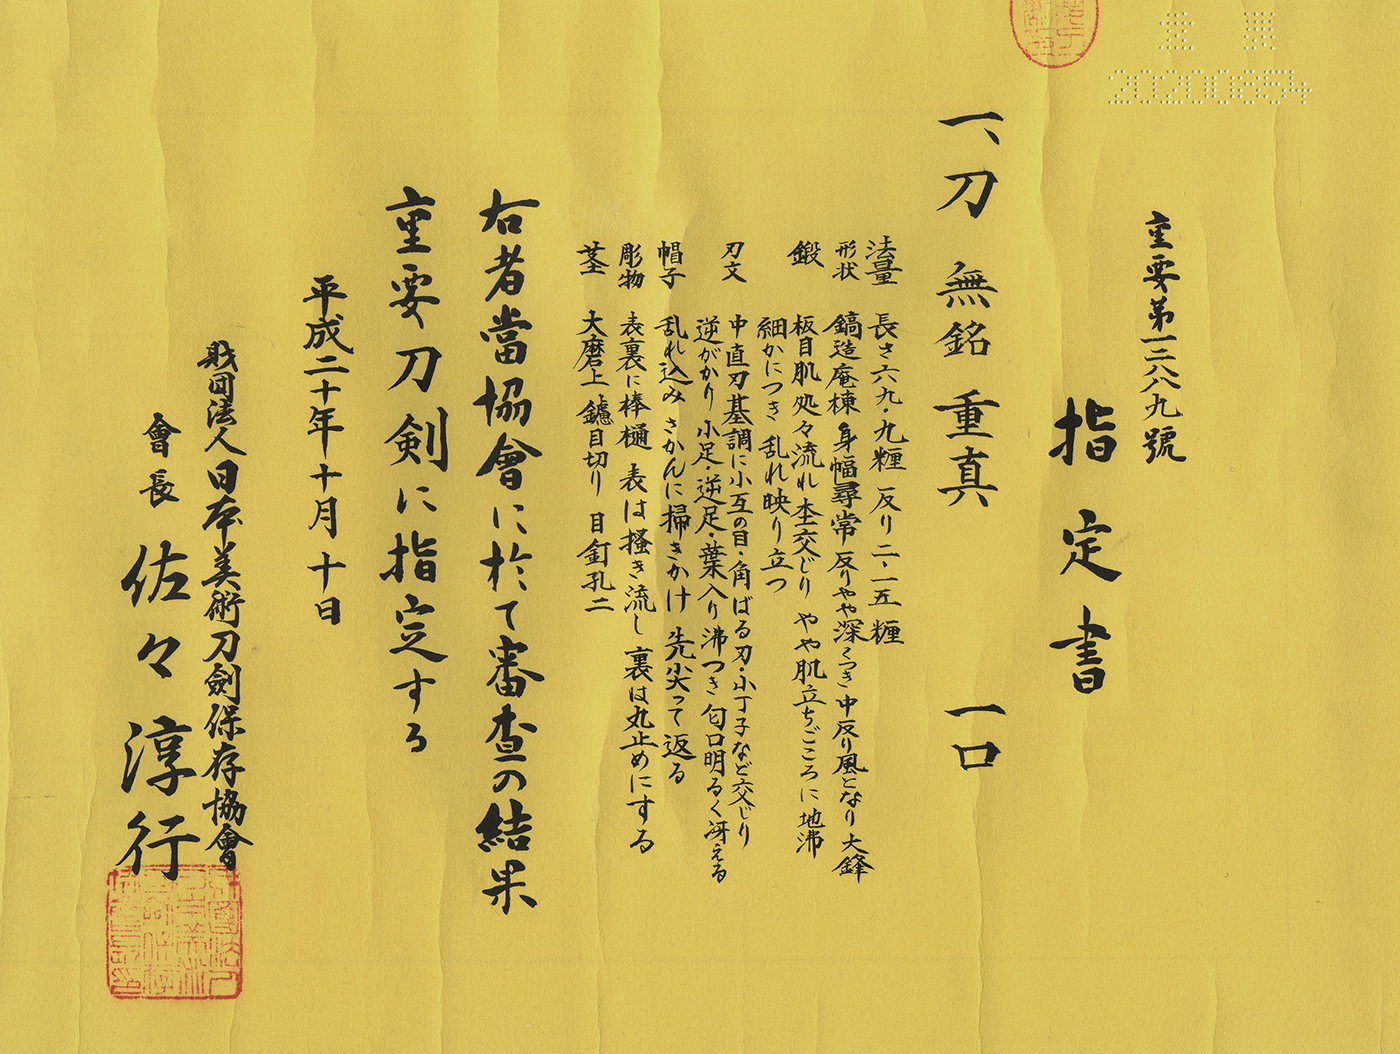 重要第一二八八九號
指定書
一、刀 無銘 重真 一口
法量 長さ六九・九糎 反り二・一五糎
形状 鎬造庵棟 身幅尋常 反りやや深くつき 中反り風となり 大鋒
鍛 板目肌 処々流れ 杢交じり やや肌立ちごころに 地沸
細かにつき 乱れ映り立つ
刃文 中直刃基調に小互の目・角ばる刃・小丁子など交じり
逆がかり 小足・逆足・葉入り 沸つき 匂口明るく冴える
帽子 乱れ込み さかんに掃きかけ 先尖って返る
彫物 表裏に棒樋 表は掻き流し 裏は丸止めにする
茎 大磨上 鑢目切り 目釘孔二
右者當協會に於て審査の結果
重要刀剣に指定する
平成二十年十月十日
財団法人日本美術刀劍保存協會
會長 佐々淳行
20200854